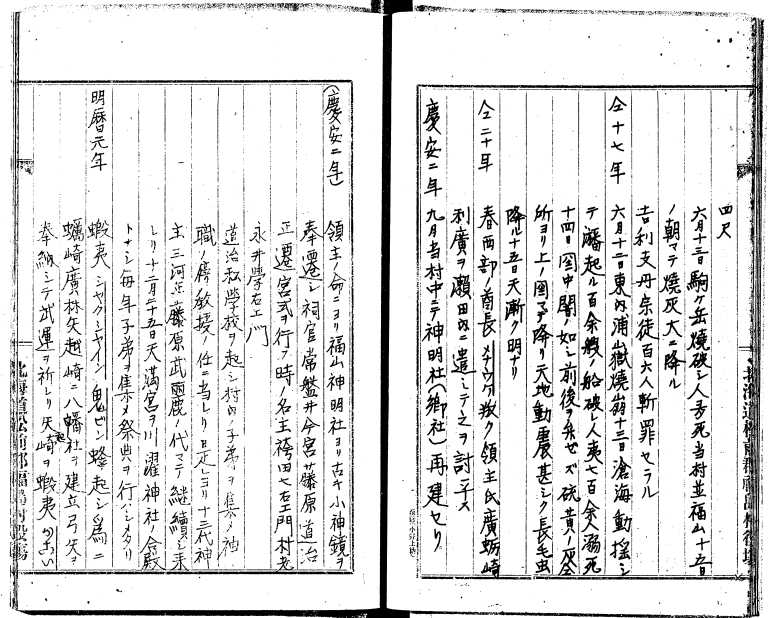 四尺
六月十三日駒ケ岳焼破シ人多死当村並福山十五日
ノ朝マテ焼灰大ニ降ル
吉利支丹宗徒百六人斬罪セラル
仝十七年
六月十三日東内浦山嶽焼崩十三日滄海動揺シ
テ 起ル百余艘ノ船破レ人夷七百余人溺死
十四日国中闇ノ如シ前後ヲ弁ゼズ硫黄ノ灰全
所ヨリ上ノ国マデ降リ天地動震甚シク長毛虫
降ル十五日天漸ク明ナリ
仝二十年
春西部ノ酋長 叛ク領主氏廣蛎崎
利廣ヲ瀬田内ニ遣シテ之ヲ討平ス
慶安二年
九月当村中ニテ神明社(郷社)再建セリ
(慶安二年)
領主ノ命ニヨリ福山神明社ヨリ古キ小神鏡ヲ
奉遷シ祠官常盤井今宮藤原道治
正遷宮式ヲ行フ時ノ名主袴田七右エ門村老
永井学右エ門
道治私学校ヲ起シ村内ノ子弟ヲ集メ神
職ノ傍教授ノ任ニ当レリ是レヨリ十三代神
主三河正藤原武麗ノ代マテ継続シ来
レリ十二月二十五日天満宮ヲ川濯神社ノ合殿
トナシ毎年子弟ヲ集メ祭典ヲ行ハシメタリ
明暦元年
蝦夷シヤクシヤイン鬼ビシ蜂起シ為ニ
蠣崎廣林矢越崎ニ八幡社ヲ建立弓矢ヲ
奉納シテ武運ヲ祈レリ矢崎ヲ蝦夷
北海道松前郡福島村役場